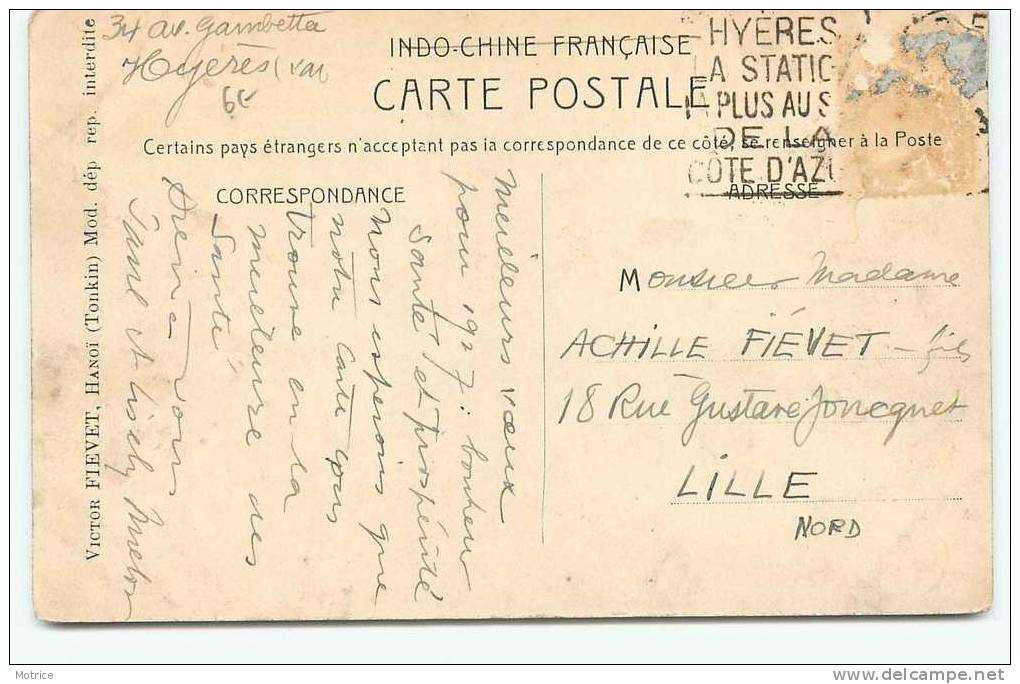 34 av. Gambetta
Hyères (Var)
6E
INDO-CHINE FRANÇAISE
CARTE POSTALE
Certains pays étrangers n'acceptent pas la correspondance de ce côté, se renseigner à la Poste
HYÈRES
LA STATIO
LA PLUS AU S
DE LA
CÔTE D'AZU
CORRESPONDANCE
ADRESSE
Meilleurs vœux
pour 1927 : bonheur
Santé et prospérité
Nous espérons que
notre carte vous
trouvera en la
meilleure des
Santé
à vous
Paul et
Monsieur Madame
ACHILLE FIÉVET - fils
18 Rue Gustave Joncquet
LILLE
NORD
VICTOR FIEVET, HANOÏ (Tonkin) Mod. dép rep. interdite
Motrice
www.delcampe.net